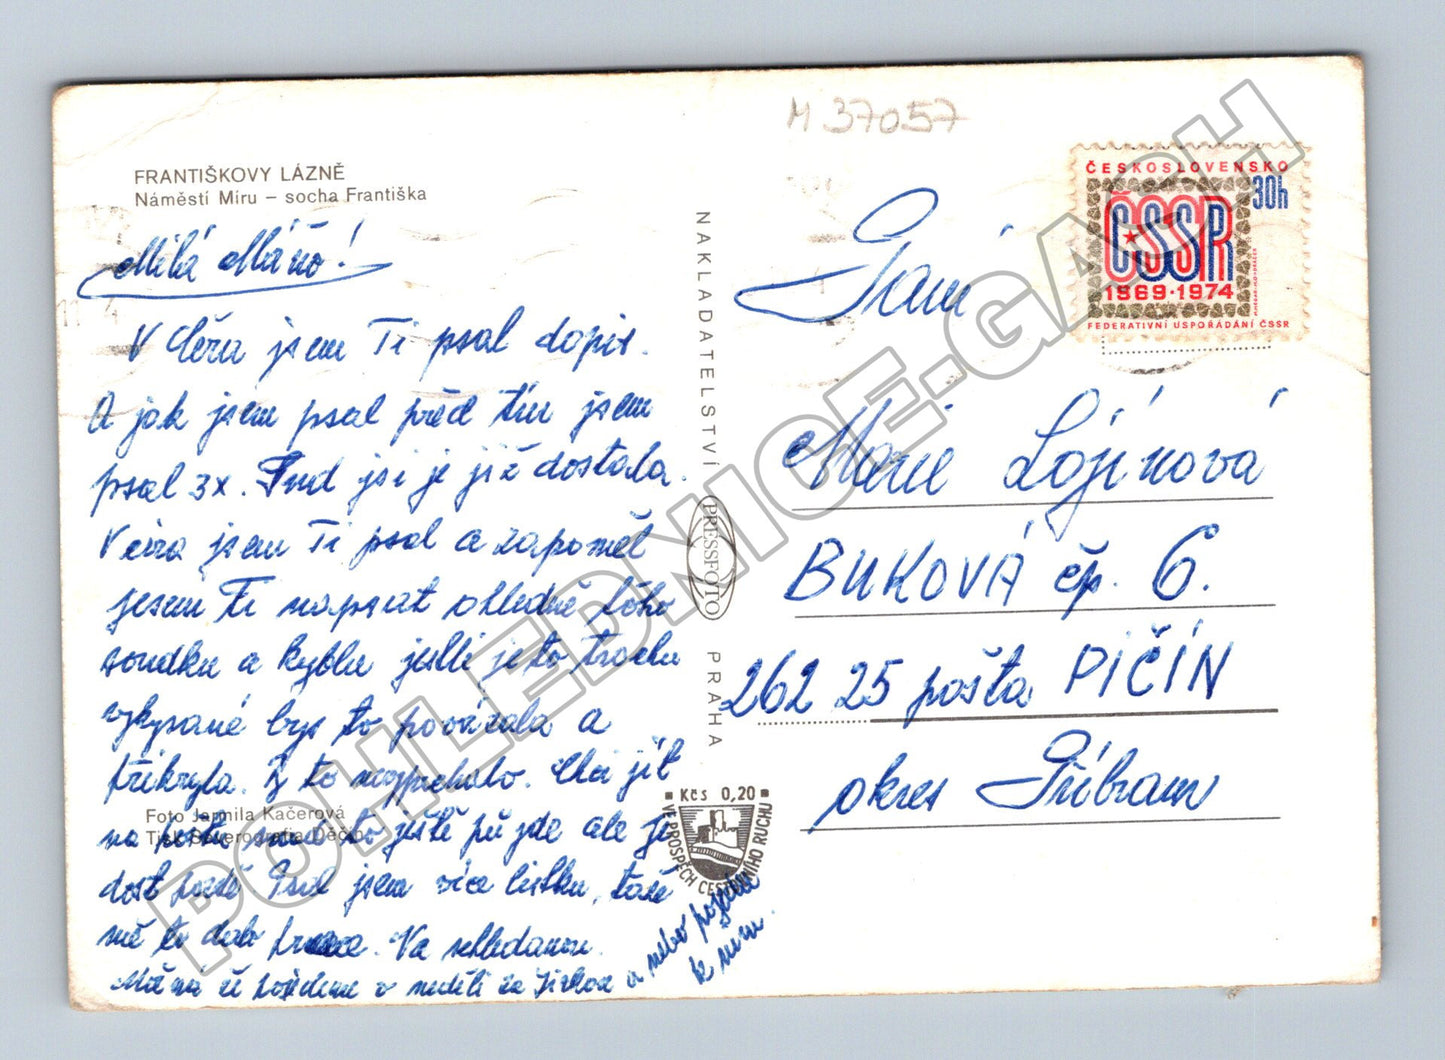 M 37057
FRANTIŠKOVY LÁZNĚ
Náměstí Míru – socha Františka
Milá Máňo!
Včera jsem Ti psal dopis.
A jak jsem psal před tím jsem
psal 3x. jsi je již dostala.
Včera jsem Ti psal a zapoměl
jesem Ti napsat ohledně toho
soudku a kyblu jestli je to trochu
vykysané bys to povázala a
přikryla. By to nevyprchalo. Chci jít
na poštu snad to ještě pů jde ale je
dost pozdě Psal jsem více lístku, také
mě to dalo práce. Na shledanou.
Možná že pojedeme v neděli za Jirkou a nebo pojedu
k nám.
Foto Jarmila Kačerová
Tisk Severografia Děčín
NAKLADATELSTVÍ PRESSFOTO PRAHA
Kčs 0,20
VE PROSPĚCH CESTOVNÍHO RUCHU
ČESKOSLOVENSKO
30h
ČSSR
1969·1974
FEDERATIVNÍ USPOŘÁDÁNÍ ČSSR
Paní
Marie Lojínová
BUKOVÁ čp. 6.
262 25 pošta PIČÍN
okres Příbram
POHLEDNICE.GASH